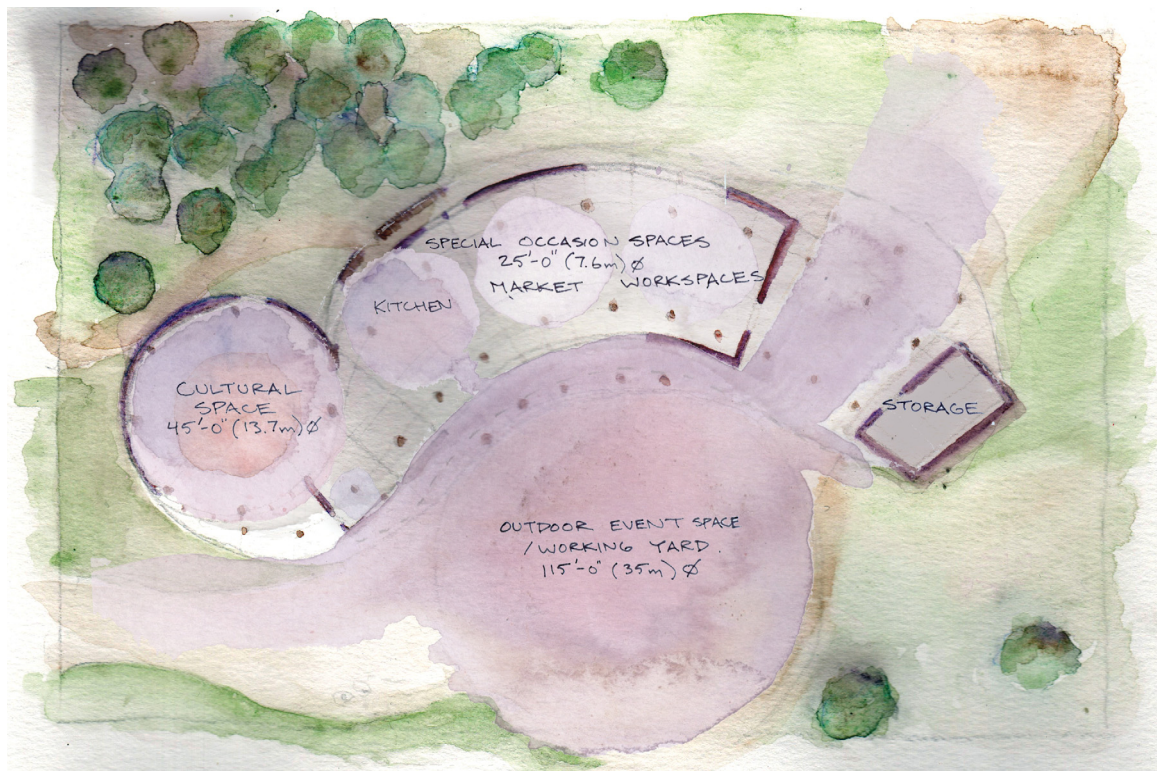 SPECIAL OCCASION SPACES
25'-0" (7.6m) Ø
MARKET WORKSPACES
KITCHEN
CULTURAL
SPACE
45'-0" (13.7m) Ø
STORAGE
OUTDOOR EVENT SPACE
/WORKING YARD.
115'-0" (35m) Ø